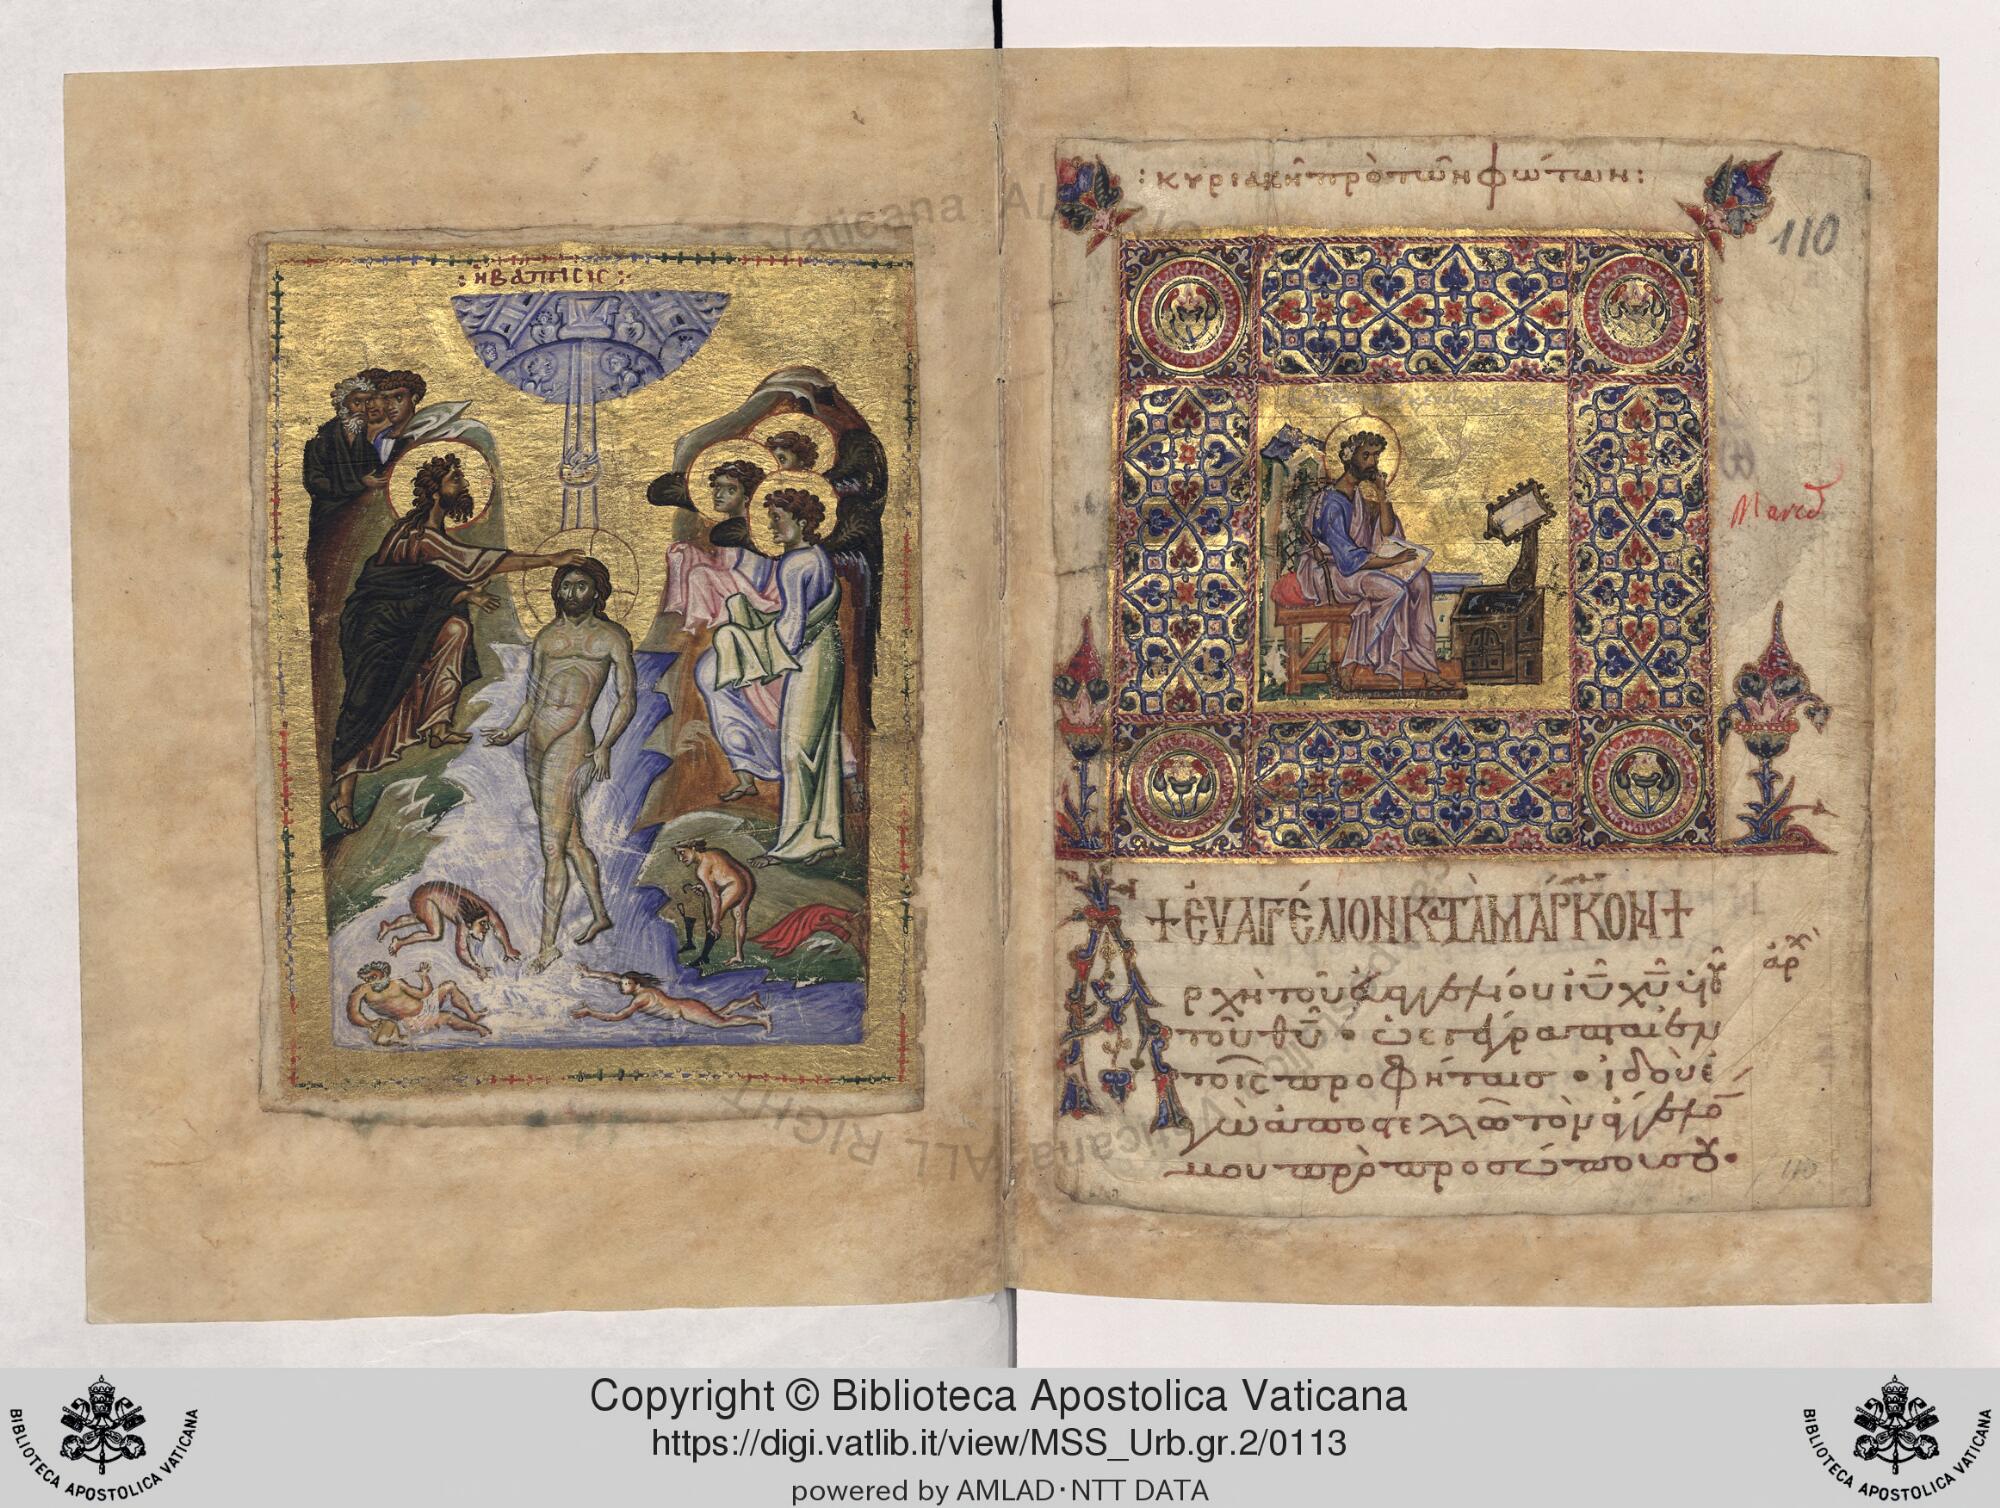 : ἡ βάπτισις :
: κυριακῆ πρὸ τῶν φώτων :
110
Marcus
+ ΕΥΑΓΓΕΛΙΟΝ ΚΑΤΑ ΜΑΡΚΟΝ +
ἀρχ
Ἀρχὴ τοῦ εὐαγγελίου ἰῡ χῡ υἱοῦ
τοῦ θῡ · ὡς γέγραπται ἐν
τοῖς προφήταις · ἰδοὺ ἐ
γὼ ἀποστέλλω τὸν ἄγγελόν
μου πρὸ προσώπου σου ·
110
Copyright © Biblioteca Apostolica Vaticana
https://digi.vatlib.it/view/MSS_Urb.gr.2/0113
powered by AMLAD·NTT DATA
BIBLIOTECA APOSTOLICA VATICANA
BIBLIOTECA APOSTOLICA VATICANA